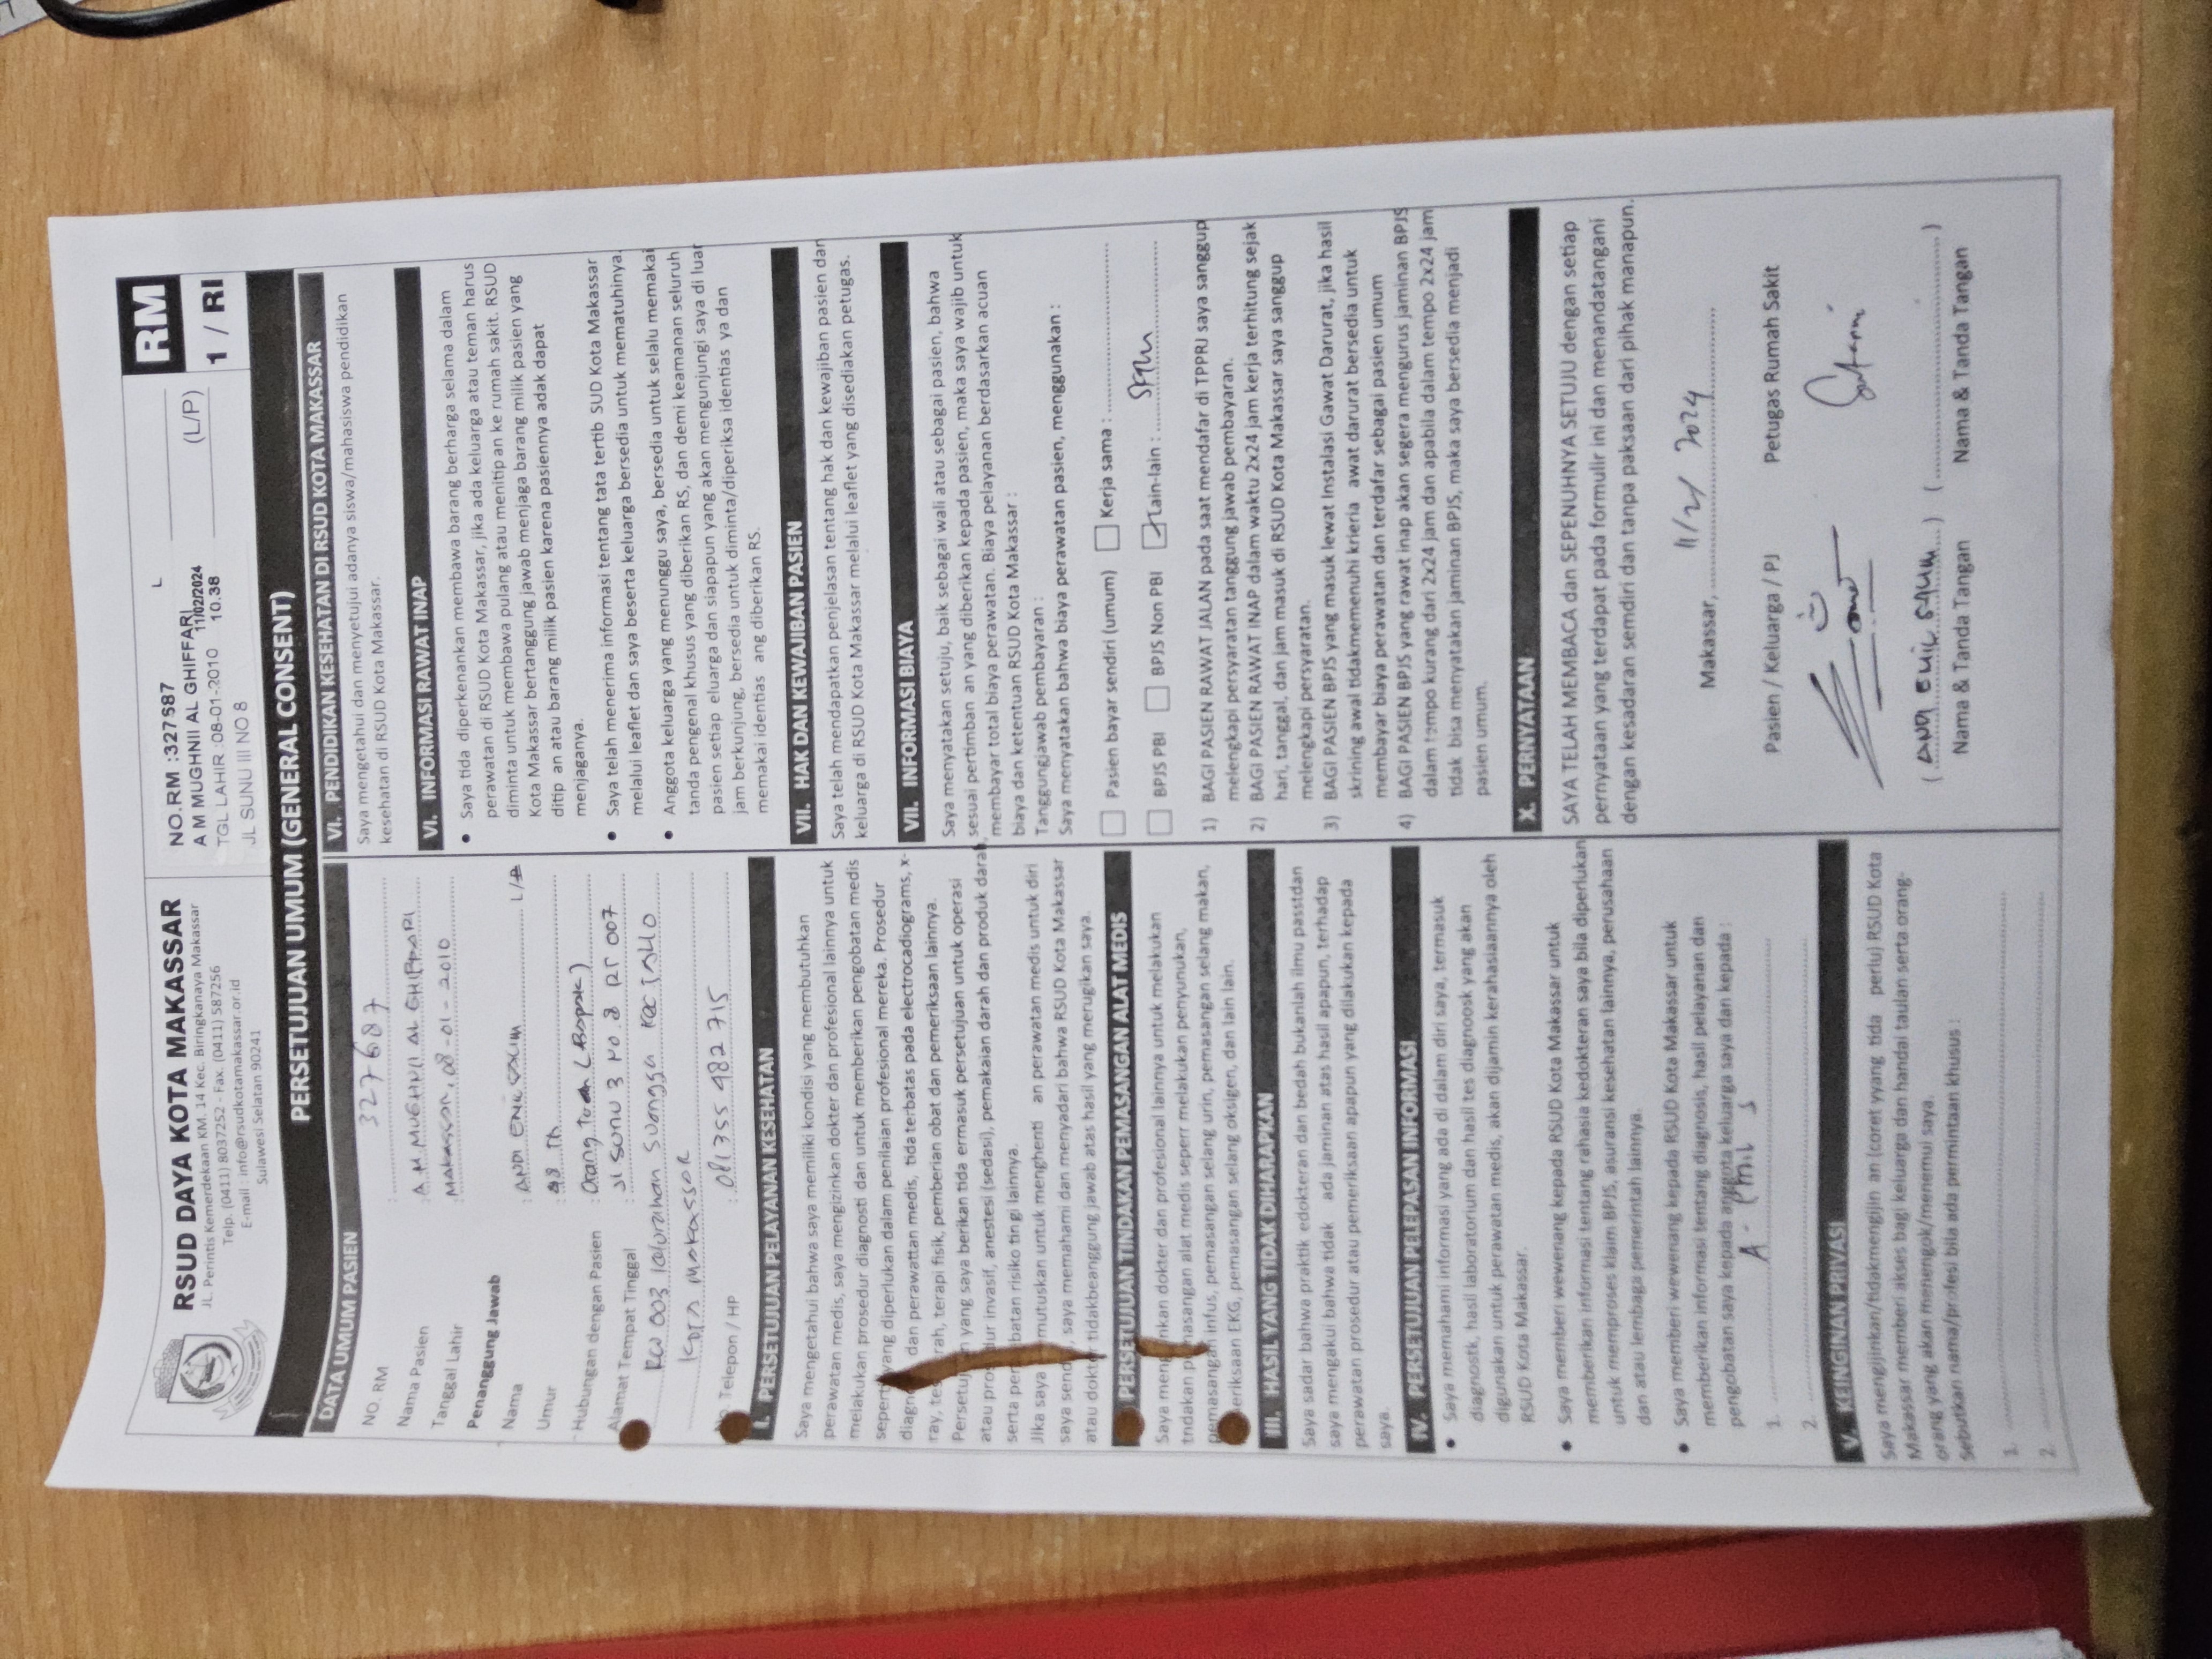 RSUD DAYA KOTA MAKASSAR
JL. Perintis Kemerdekaan KM. 14 Kec. Biringkanaya Makassar
Telp. (0411) 8037252 - Fax. (0411) 587256
E-mail : info@rsudkotamakassar.or.id
Sulawesi Selatan 90241
NO.RM :327687 L
A M MUGHNII AL GHIFFARI
11/02/2024
TGL LAHIR :08-01-2010 10.38
JL SUNU III NO 8
(L/P)
RM
1 / RI
PERSETUJUAN UMUM (GENERAL CONSENT)
DATA UMUM PASIEN
NO. RM : 327687
Nama Pasien : A M MUGHNII AL GHIFFARI
Tanggal Lahir : Makassar, 08-01-2010
Penanggung Jawab
Nama : ANDI EMIL SALIM L/P
Umur : 48 Th
Hubungan dengan Pasien : Orang tua (Bapak)
Alamat Tempat Tinggal : Jl SUNU 3 NO.8 RT 007
RW 003 Kelurahan Suangga KEC TALLO
KOTA MAKASSAR
No. Telepon / HP : 081355 482 715
I. PERSETUJUAN PELAYANAN KESEHATAN
Saya mengetahui bahwa saya memiliki kondisi yang membutuhkan
perawatan medis, saya mengizinkan dokter dan profesional lainnya untuk
melakukan prosedur diagnosti dan untuk memberikan pengobatan medis
seperti yang diperlukan dalam penilaian profesional mereka. Prosedur
diagn dan perawattan medis, tida terbatas pada electrocadiograms, x-
ray, tes rah, terapi fisik, pemberian obat dan pemeriksaan lainnya.
Persetuj n yang saya berikan tida ermasuk persetujuan untuk operasi
atau pros dur invasif, anestesi (sedasi), pemakaian darah dan produk darah,
serta pen batan risiko tin gi lainnya.
JIka saya mutuskan untuk menghenti an perawatan medis untuk diri
saya send , saya memahami dan menyadari bahwa RSUD Kota Makassar
atau dokter tidakbeanggung jawab atas hasil yang merugikan saya.
PERSETUJUAN TINDAKAN PEMASANGAN ALAT MEDIS
Saya meng nkan dokter dan profesional lainnya untuk melakukan
tndakan p masangan alat medis seperr melakukan penyunukan,
pemasangan infus, pemasangan selang urin, pemasangan selang makan,
eriksaan EKG, pemasangan selang oksigen, dan lain lain.
III. HASIL YANG TIDAK DIHARAPKAN
Saya sadar bahwa praktik edokteran dan bedah bukanlah ilmu passtdan
saya mengakui bahwa tidak ada jaminan atas hasil apapun, terhadap
perawatan prosedur atau pemeriksaan apapun yang dilakukan kepada
saya.
IV. PERSETUJUAN PELEPASAN INFORMASI
• Saya memahami informasi yang ada di dalam diri saya, termasuk
diagnostk, hasil laboratorium dan hasil tes diagnoosk yang akan
digunakan untuk perawatan medis, akan dijamin kerahasiaannya oleh
RSUD Kota Makassar.
• Saya memberi wewenang kepada RSUD Kota Makassar untuk
memberikan informasi tentang rahasia kedokteran saya bila diperlukan
untuk memproses klaim BPJS, asuransi kesehatan lainnya, perusahaan
dan atau lembaga pemerintah lainnya.
• Saya memberi wewenang kepada RSUD Kota Makassar untuk
memberikan informasi tentang diagnosis, hasil pelayanan dan
pengobatan saya kepada anggota keluarga saya dan kepada :
1. A - Emil S
2.
V. KEINGINAN PRIVASI
Saya mengijinkan/tidakmengijin an (coret yyang tida perlu) RSUD Kota
Makassar memberi akses bagi keluarga dan handai taulan serta orang-
orang yang akan menengok/menemui saya.
Sebutkan nama/profesi bila ada permintaan khusus :
1.
2.
VI. PENDIDIKAN KESEHATAN DI RSUD KOTA MAKASSAR
Saya mengetahui dan menyetujui adanya siswa/mahasiswa pendidikan
kesehatan di RSUD Kota Makassar.
VI. INFORMASI RAWAT INAP
• Saya tida diperkenankan membawa barang berharga selama dalam
perawatan di RSUD Kota Makassar, jika ada keluarga atau teman harus
diminta untuk membawa pulang atau menitip an ke rumah sakit. RSUD
Kota Makassar bertanggung jawab menjaga barang milik pasien yang
ditip an atau barang milik pasien karena pasiennya adak dapat
menjaganya.
• Saya telah menerima informasi tentang tata tertib SUD Kota Makassar
melalui leaflet dan saya beserta keluarga bersedia untuk mematuhinya.
• Anggota keluarga yang menunggu saya, bersedia untuk selalu memakai
tanda pengenal khusus yang diberikan RS, dan demi keamanan seluruh
pasien setiap eluarga dan siapapun yang akan mengunjungi saya di luar
jam berkunjung, bersedia untuk diminta/diperiksa identias ya dan
memakai identias ang diberikan RS.
VII. HAK DAN KEWAJIBAN PASIEN
Saya telah mendapatkan penjelasan tentang hak dan kewajiban pasien dan
keluarga di RSUD Kota Makassar melalui leaflet yang disediakan petugas.
VII. INFORMASI BIAYA
Saya menyatakan setuju, baik sebagai wali atau sebagai pasien, bahwa
sesuai pertimban an yang diberikan kepada pasien, maka saya wajib untuk
membayar total biaya perawatan. Biaya pelayanan berdasarkan acuan
biaya dan ketentuan RSUD Kota Makassar :
Tanggungjawab pembayaran :
Saya menyatakan bahwa biaya perawatan pasien, menggunakan :
Pasien bayar sendiri (umum) Kerja sama :
BPJS PBI BPJS Non PBI Lain-lain :
1) BAGI PASIEN RAWAT JALAN pada saat mendafar di TPPRJ saya sanggup
melengkapi persyaratan tanggung jawab pembayaran.
2) BAGI PASIEN RAWAT INAP dalam waktu 2x24 jam kerja terhitung sejak
hari, tanggal, dan jam masuk di RSUD Kota Makassar saya sanggup
melengkapi persyaratan.
3) BAGI PASIEN BPJS yang masuk lewat Instalasi Gawat Darurat, jika hasil
skrining awal tidakmemenuhi krieria awat darurat bersedia untuk
membayar biaya perawatan dan terdafar sebagai pasien umum
4) BAGI PASIEN BPJS yang rawat inap akan segera mengurus jaminan BPJS
dalam tempo kurang dari 2x24 jam dan apabila dalam tempo 2x24 jam
tidak bisa menyatakan jaminan BPJS, maka saya bersedia menjadi
pasien umum.
X. PERNYATAAN
SAYA TELAH MEMBACA dan SEPENUHNYA SETUJU dengan setiap
pernyataan yang terdapat pada formulir ini dan menandatangani
dengan kesadaran semdiri dan tanpa paksaan dari pihak manapun.
Makassar, 11/2/ 2024
Pasien / Keluarga / PJ Petugas Rumah Sakit
( ANDI EMIL SALIM ) ( )
Nama & Tanda Tangan Nama & Tanda Tangan